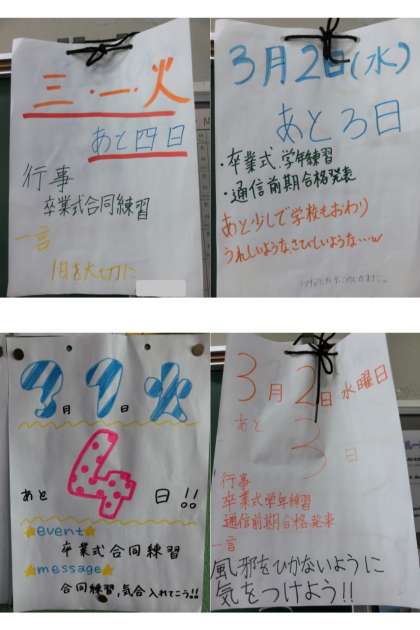 三・一・火
あと四日
行事
卒業式合同練習
一言
1日を大切に
3月2日(水)
あと3日
・卒業式学年練習
・通信前期合格発表
あと少しで学校もおわり
うれしいような、さびしいような…w
3月1日火
あと4日!!
event
卒業式合同練習
message
合同練習,気合入れてこう!!
3月2日水曜日
あと3日
行事
卒業式学年練習
通信前期合格発表
一言
風邪をひかないように
気をつけよう!!